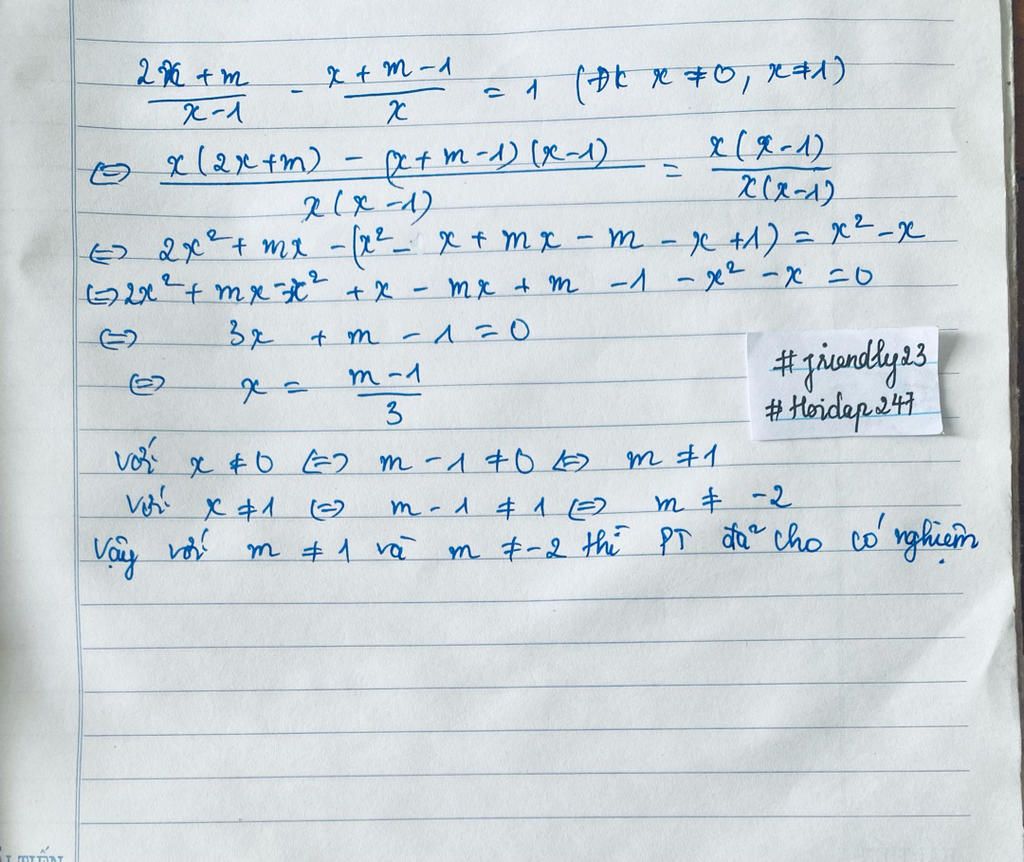 2x + m / x - 1 - x + m - 1 / x = 1 (ĐK x ≠ 0, x ≠ 1)
⇔ x(2x+m) - (x+m-1)(x-1) / x(x-1) = x(x-1) / x(x-1)
⇔ 2x² + mx - (x² - x + mx - m - x + 1) = x² - x
⇔ 2x² + mx - x² + x - mx + m - 1 - x² - x = 0
⇔ 3x + m - 1 = 0
⇔ x = m - 1 / 3
#friendly23
#Hoidap247
Với x ≠ 0 ⇔ m - 1 ≠ 0 ⇔ m ≠ 1
Với x ≠ 1 ⇔ m - 1 ≠ 1 ⇔ m ≠ -2
Vậy với m ≠ 1 và m ≠ -2 thì PT đã cho có nghiệm